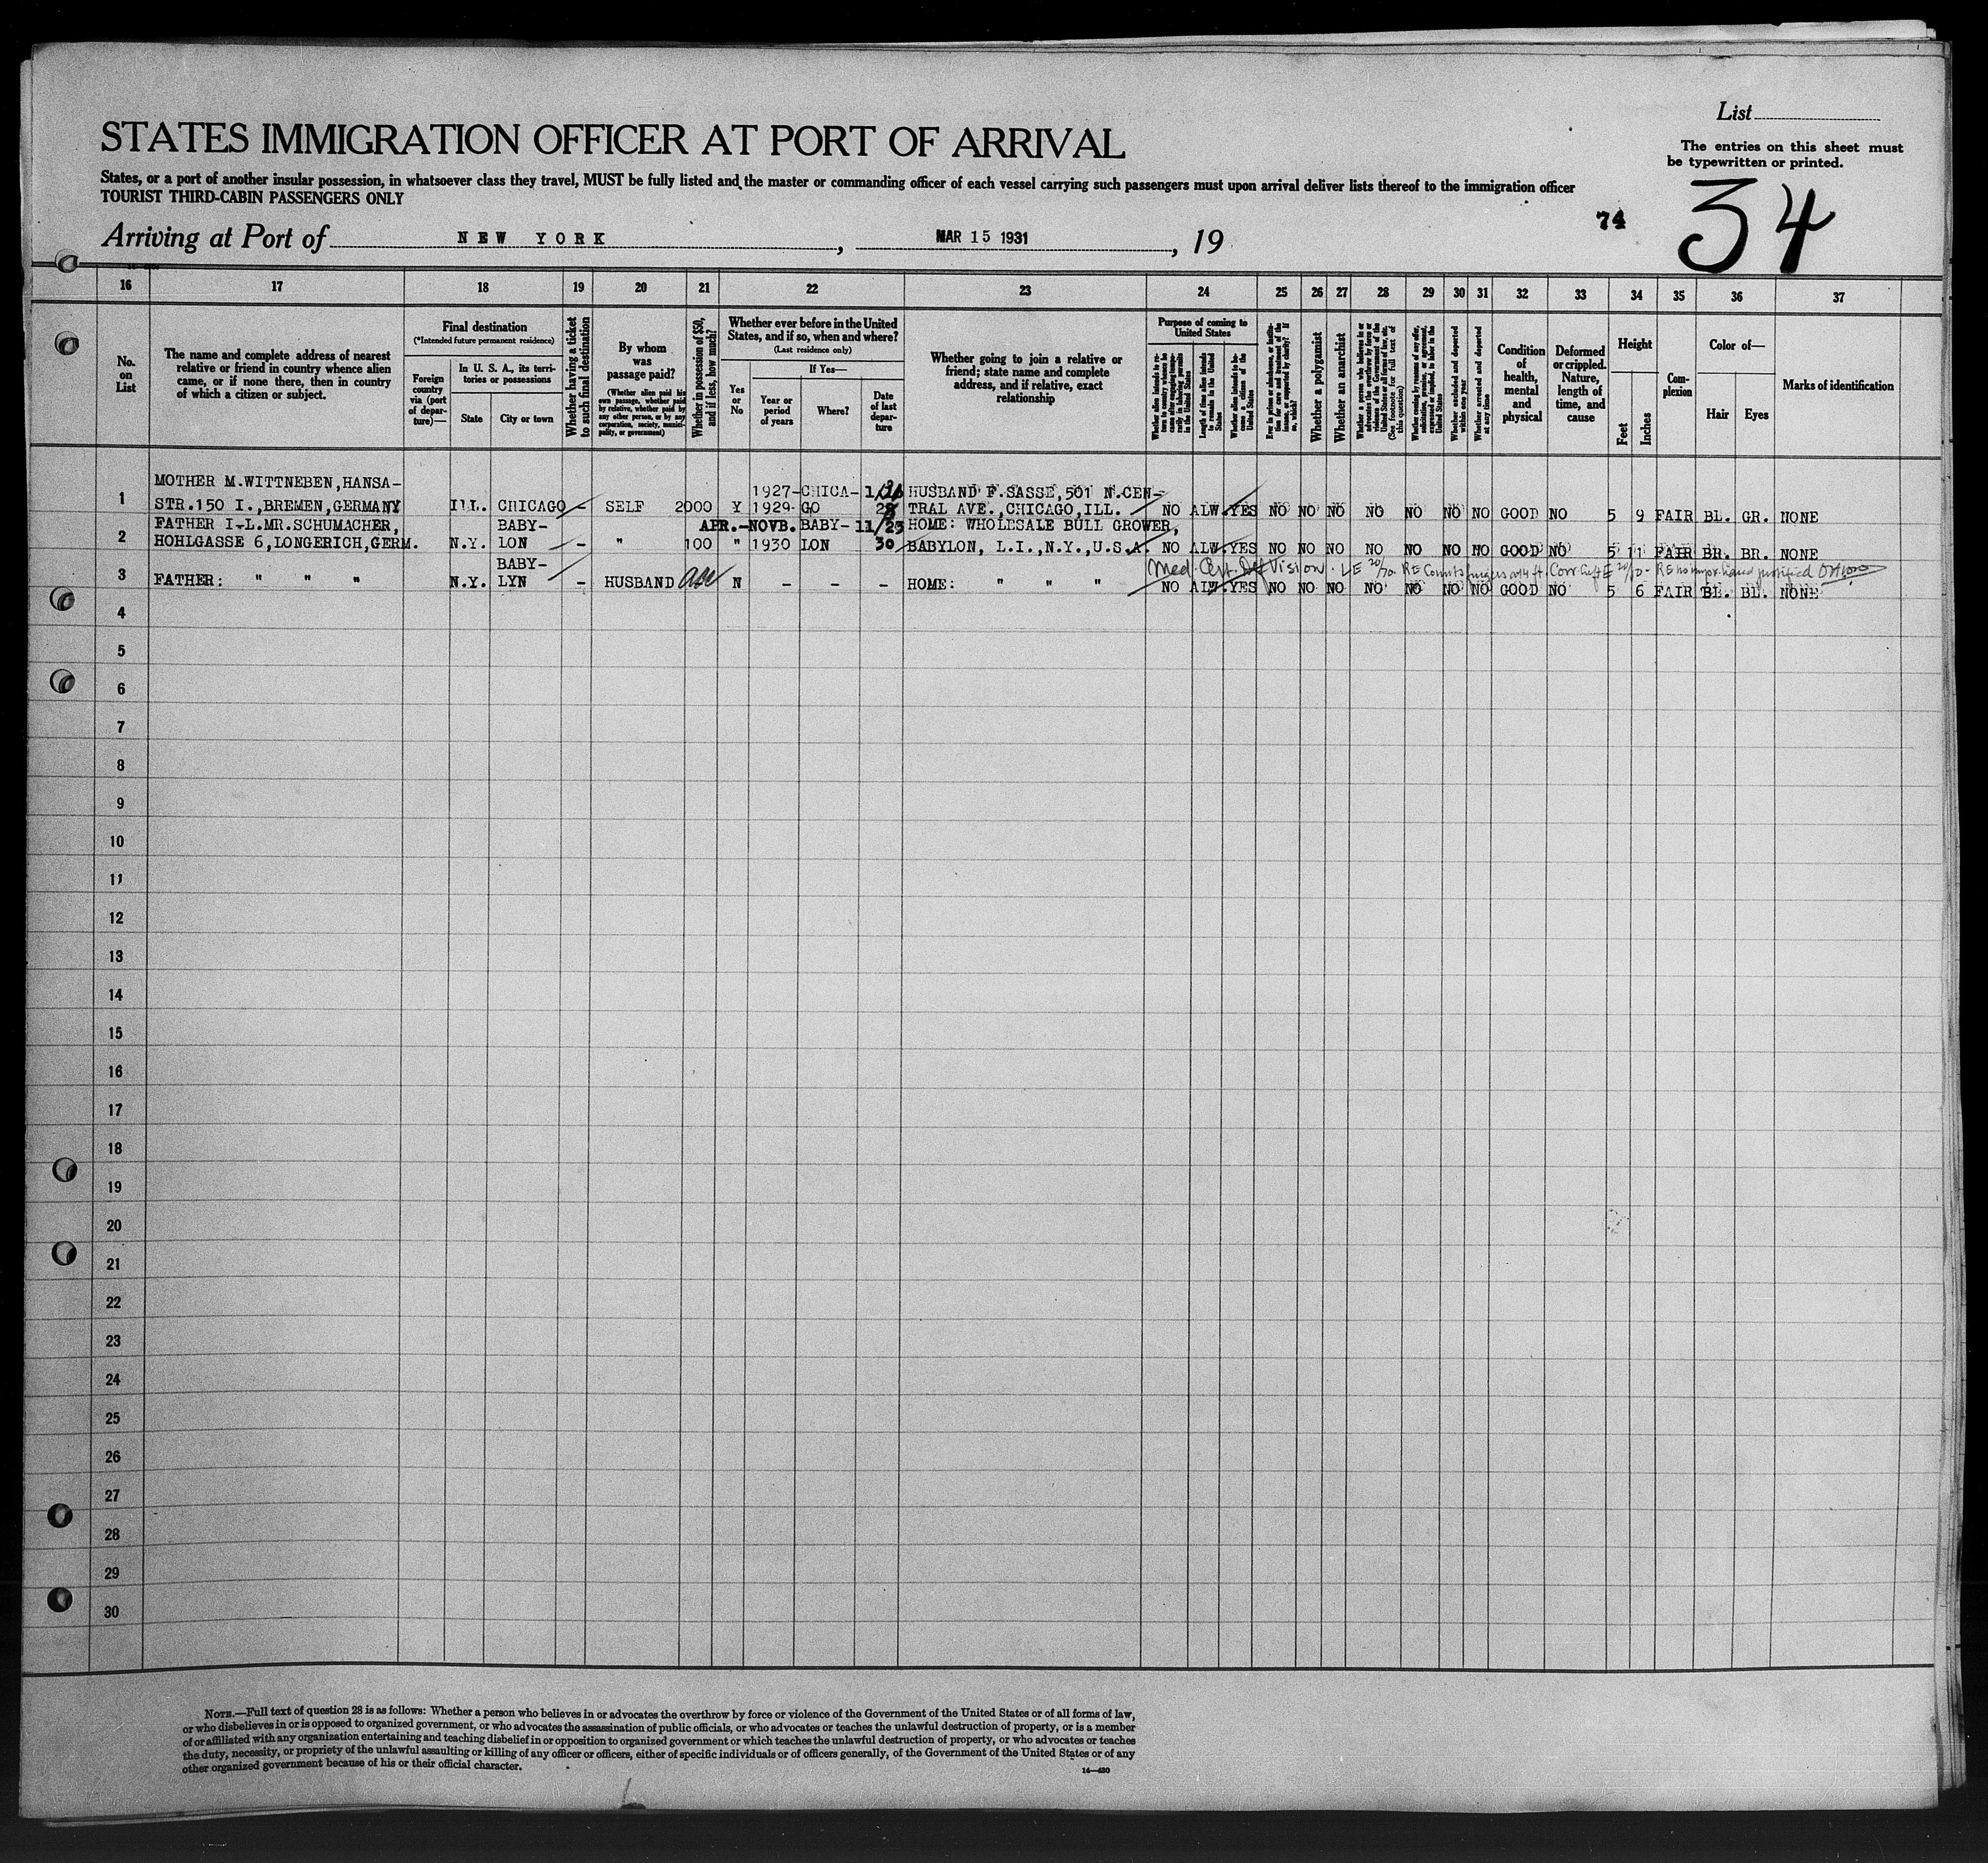 List
STATES IMMIGRATION OFFICER AT PORT OF ARRIVAL
The entries on this sheet must
be typewritten or printed.
States, or a port of another insular possession, in whatsoever class they travel, MUST be fully listed and the master or commanding officer of each vessel carrying such passengers must upon arrival deliver lists thereof to the immigration officer
TOURIST THIRD-CABIN PASSENGERS ONLY
74 34
Arriving at Port of NEW YORK, MAR 15 1931, 19
16 17 18 19 20 21 22 23 24 25 26 27 28 29 30 31 32 33 34 35 36 37
No. on List
The name and complete address of nearest
relative or friend in country whence alien
came, or if none there, then in country
of which a citizen or subject.
Final destination
(*Intended future permanent residence)
Foreign country via (port of departure)—
In U. S. A., its territories or possessions
State
City or town
Whether having a ticket to such final destination
By whom was passage paid?
(Whether alien paid his own passage, whether paid by relative, whether paid by any other person, or by any corporation, society, municipality, or government)
Whether in possession of $50, and if less, how much?
Whether ever before in the United
States, and if so, when and where?
(Last residence only)
Yes or No
If Yes—
Year or period of years
Where?
Date of last departure
Whether going to join a relative or
friend; state name and complete
address, and if relative, exact
relationship
Purpose of coming to United States
Whether alien intends to return to country whence he came after engaging temporarily in laboring pursuits in the United States
Length of time alien intends to remain in the United States
Whether alien intends to become a citizen of the United States
Ever in prison or almshouse, or institution for care and treatment of the insane, or supported by charity? If so, which?
Whether a polygamist
Whether an anarchist
Whether a person who believes in or advocates the overthrow by force or violence of the Government of the United States or all forms of law, etc. (See footnote for full text of this question)
Whether coming by reason of any offer, solicitation, promise, or agreement, expressed or implied, to labor in the United States
Whether excluded and deported within one year
Whether arrested and deported at any time
Condition of health, mental and physical
Deformed or crippled. Nature, length of time, and cause
Height
Feet
Inches
Complexion
Color of—
Hair
Eyes
Marks of identification
MOTHER M.WITTNEBEN,HANSA- 1927- CHICA- HUSBAND F.SASSE,501 N.CEN-
1 STR.150 I.,BREMEN,GERMANY ILL. CHICAGO - SELF 2000 Y 1929- GO TRAL AVE.,CHICAGO,ILL. NO ALW. YES NO NO NO NO NO NO NO GOOD NO 5 9 FAIR BL. GR. NONE
FATHER I-L.MR.SCHUMACHER, BABY- APR.-NOVB. BABY- 11/23 HOME: WHOLESALE BULL GROWER,
2 HOHLGASSE 6,LONGERICH,GERM. N.Y. LON - " 100 " 1930 LON 30 BABYLON, L.I.,N.Y.,U.S.A. NO ALW. YES NO NO NO NO NO NO NO GOOD NO 5 11 FAIR BR. BR. NONE
BABY- Med. Cert. Def Vision. LE 20/70. RE Counts fingers at 4 ft.
3 FATHER: " " " N.Y. LYN - HUSBAND N - - - HOME: " " " NO ALW. YES NO NO NO NO NO NO NO GOOD NO 5 6 FAIR BL. BL. NONE
4
5
6
7
8
9
10
11
12
13
14
15
16
17
18
19
20
21
22
23
24
25
26
27
28
29
30
NOTE.—Full text of question 28 is as follows: Whether a person who believes in or advocates the overthrow by force or violence of the Government of the United States or of all forms of law,
or who disbelieves in or is opposed to organized government, or who advocates the assassination of public officials, or who advocates or teaches the unlawful destruction of property, or is a member
of or affiliated with any organization entertaining and teaching disbelief in or opposition to organized government or which teaches the unlawful destruction of property, or who advocates or teaches
the duty, necessity, or propriety of the unlawful assaulting or killing of any officer or officers, either of specific individuals or of officers generally, of the Government of the United States or of any
other organized government because of his or their official character.
14—430